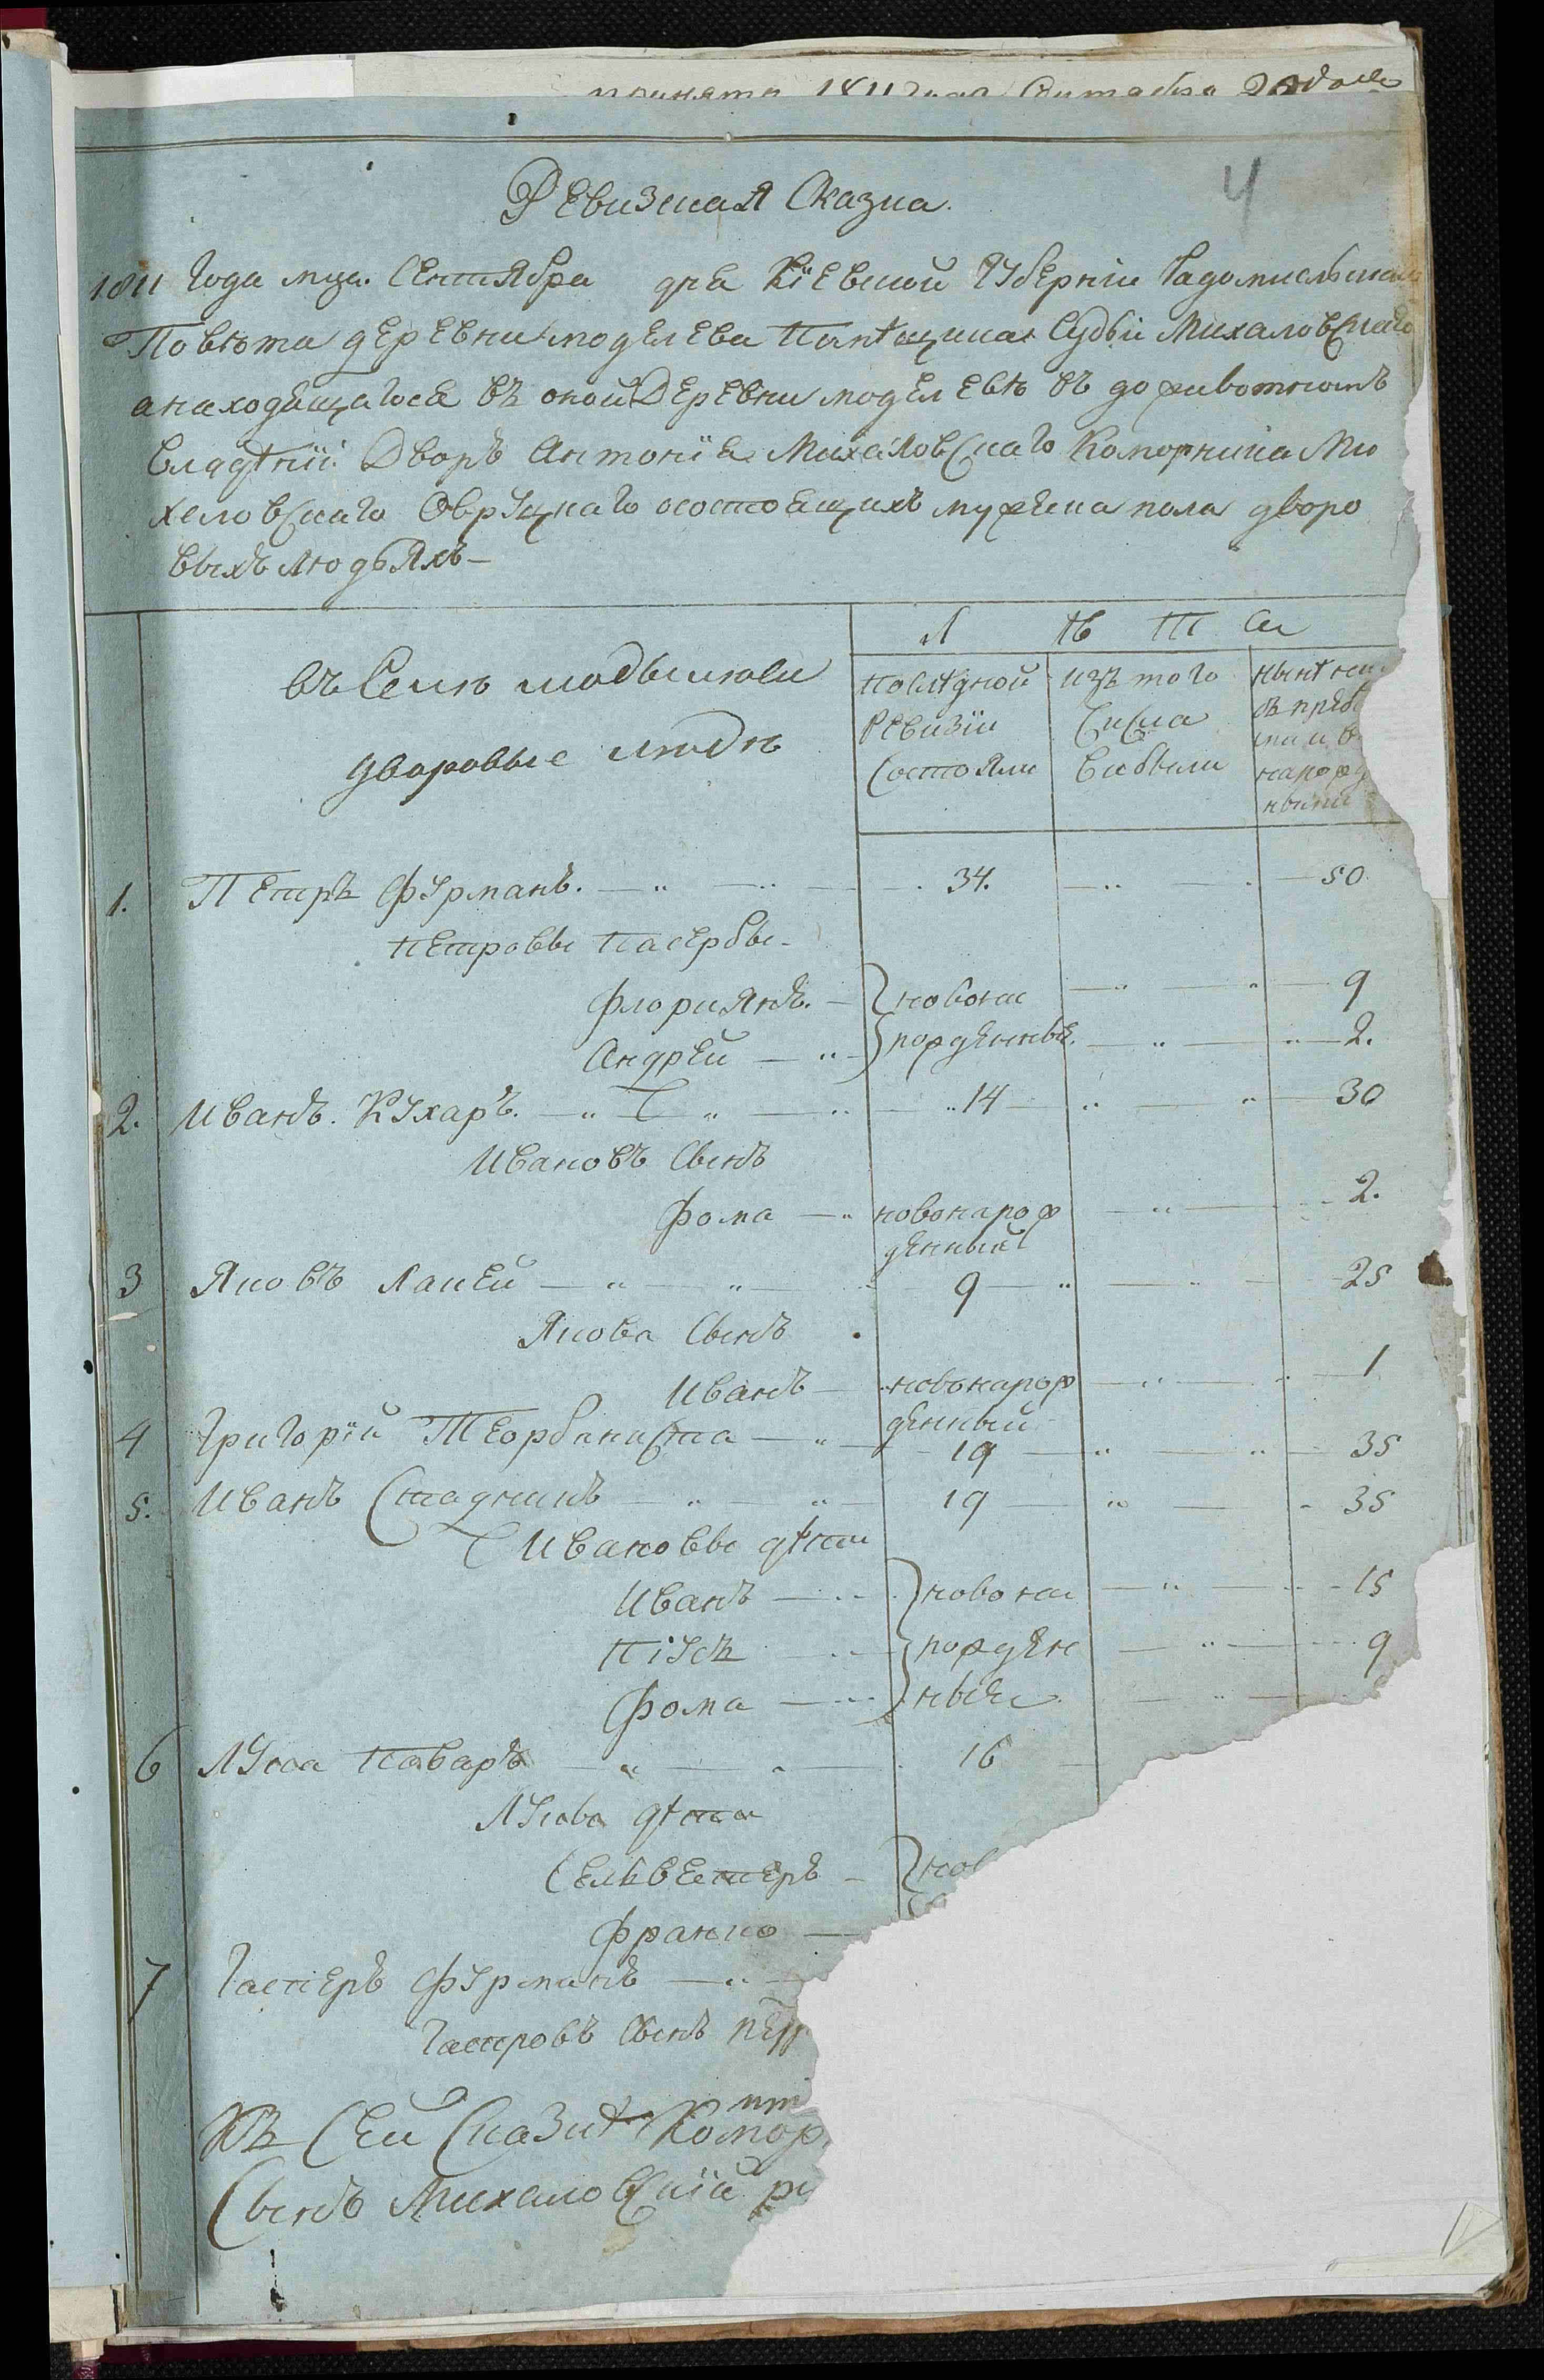 принято 1811 года Сентября 20 дня
4
Ревизская Сказка.
1811 года мца. Сентября дня Кіевской Губерніи Радомисльскаго
Повѣта деревни моделева Судьи Михаловскаго
анаходящагося въ оной Деревни моделевѣ въ доживотномъ
владѣніи Дворѣ Антонія Михаловскаго Коморника Ми
халовскаго Овруцкаго осостоящихъ мужеска пола дворо
выхъ людьяхъ —
Л ѣ т а
въ Селѣ модылюви
дворовые людѣ
послѣдной Ревизіи Состояли
изъ того Числа выбыли
нынѣ
1. Петръ Фурманъ. — 34. — 50
Петровы Пасербы —
Флориянъ. — } новона — 9
Андрей — } рожденные. — 2.
2. Иванъ. Кухаръ. — 14 — 30
Ивановъ Сынъ
Фома — новонарож — 2.
денный
3 Яковъ Лакей — 9 — 25
Якова Сынъ
Иванъ — новонарож — 1
денный
4 Григорій Теорбаниста — 19 — 35
5. Иванъ Стадникъ — 19 — 35
Ивановы дѣти
Иванъ — } новона — 15
— } рожден — 9
Фома — } ные —
6 Лука Поваръ — 16 —
Лукова дѣти
Селвестеръ — } нов
Франко —
7 Гасперъ Фурманъ —
Гаспровъ Сынъ
Къ Сей Сказкѣ Комор
Сынъ Михаловскій ру